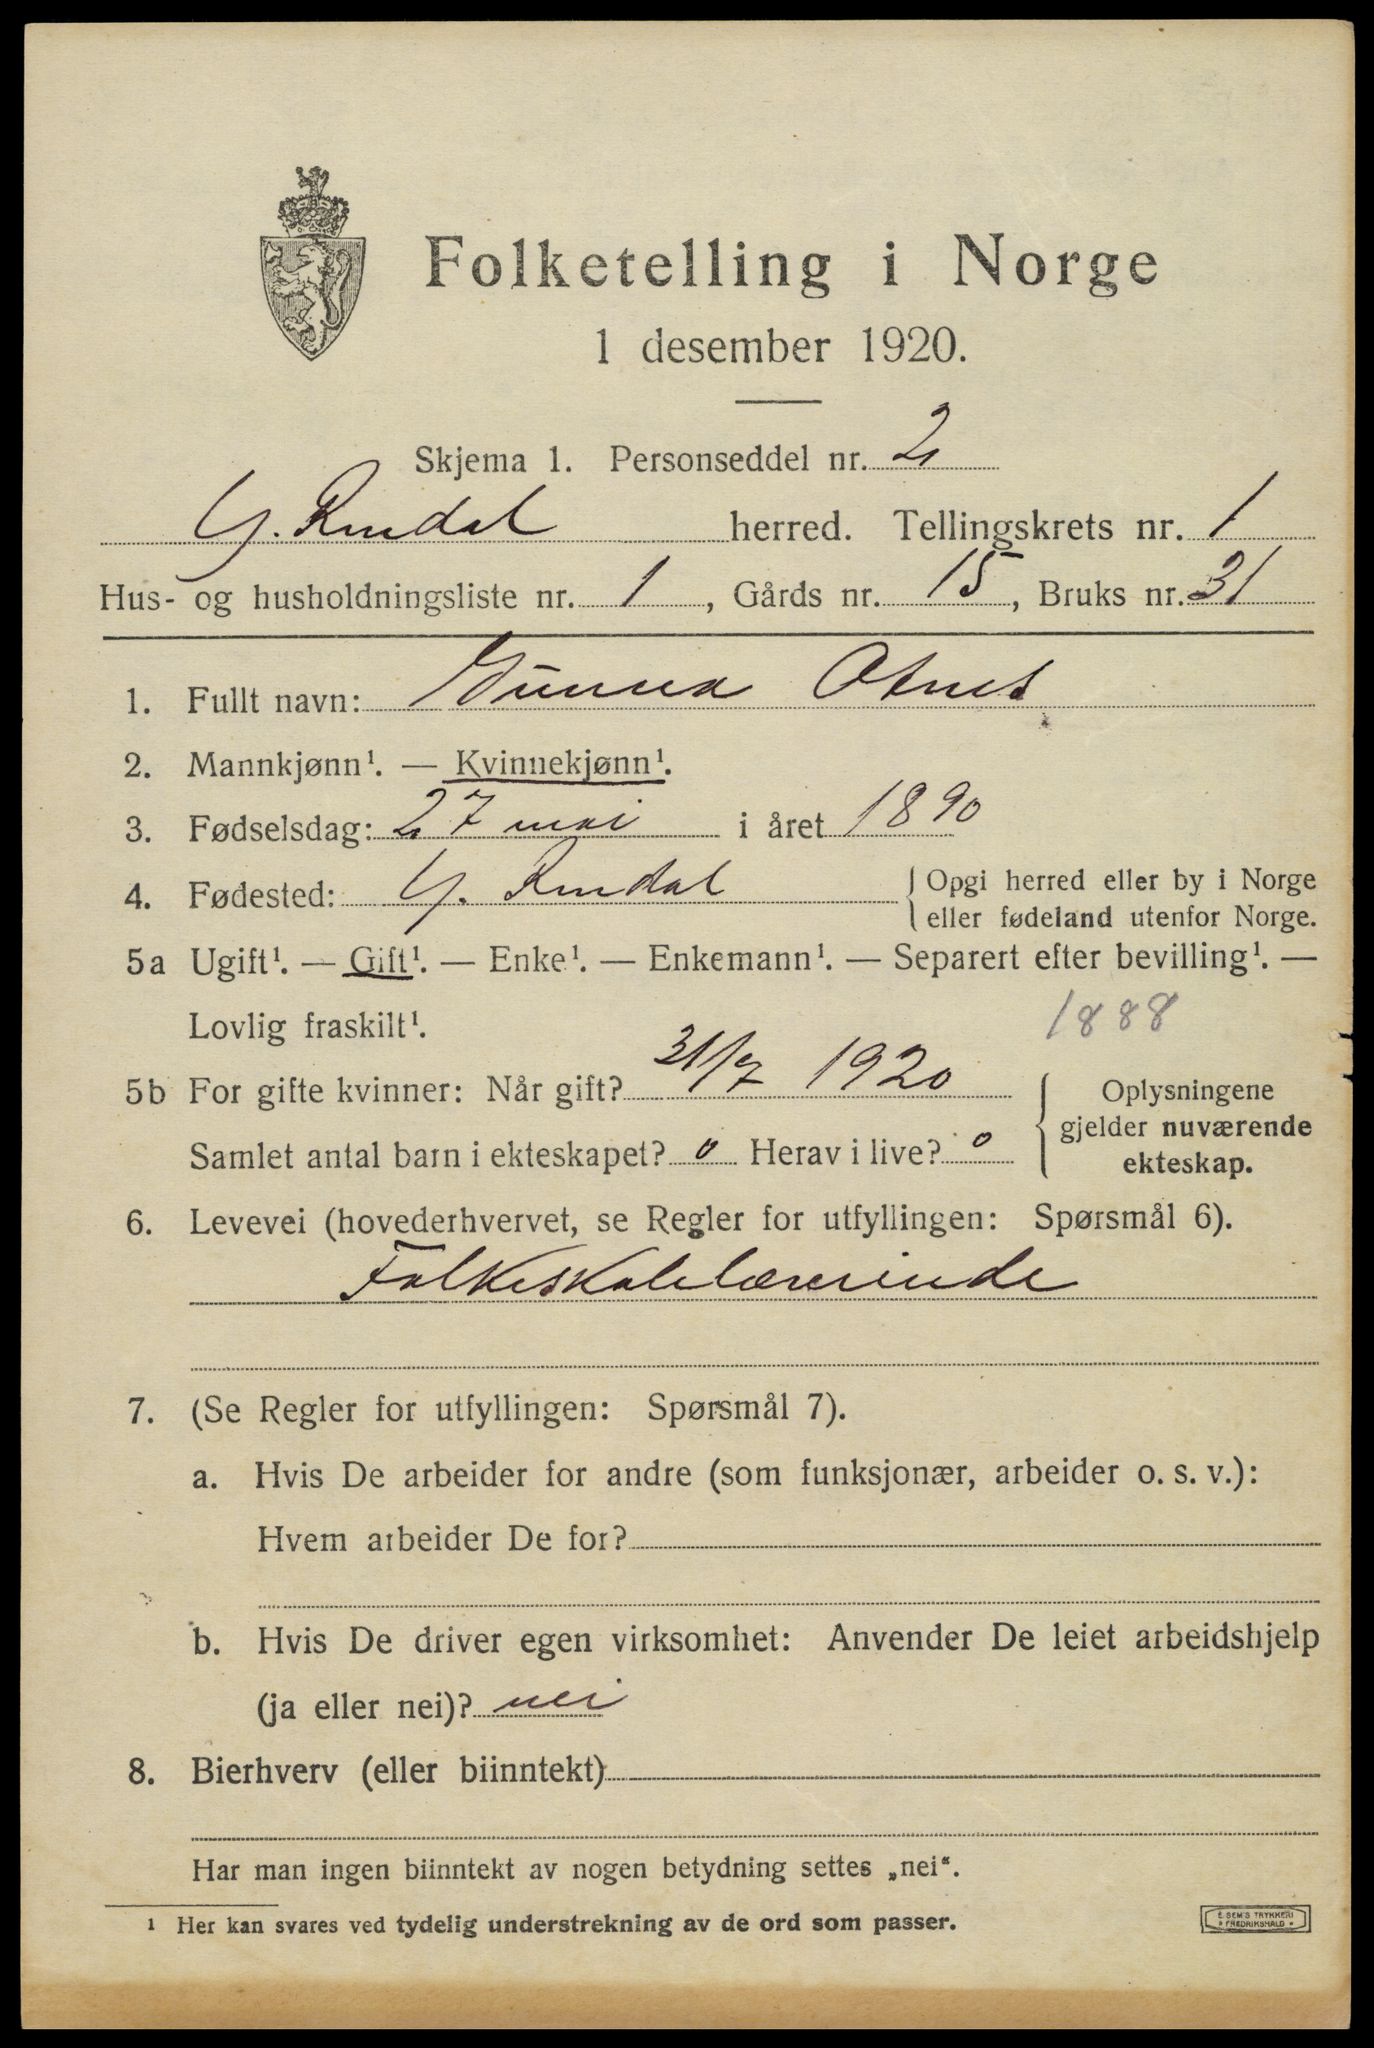 Folketelling i Norge
1 desember 1920.
Skjema 1. Personseddel nr. 2
Y. Rendal herred. Tellingskrets nr. 1
Hus- og husholdningsliste nr. 1, Gårds nr. 15, Bruks nr. 31
1. Fullt navn: Gunna Otnes
2. Mannkjønn¹. — Kvinnekjønn¹.
3. Fødselsdag: 27 mai i året 1890
4. Fødested: Y. Rendal { Opgi herred eller by i Norge
eller fødeland utenfor Norge.
5a Ugift¹. — Gift¹. — Enke¹. — Enkemann¹. — Separert efter bevilling¹. —
Lovlig fraskilt¹. 1888
5b For gifte kvinner: Når gift? 31/7 1920 { Oplysningene
gjelder nuværende
Samlet antal barn i ekteskapet? 0 Herav i live? 0 ekteskap.
6. Levevei (hovederhvervet, se Regler for utfyllingen: Spørsmål 6).
Folkeskolelærerinde
7. (Se Regler for utfyllingen: Spørsmål 7).
a. Hvis De arbeider for andre (som funksjonær, arbeider o. s. v.):
Hvem arbeider De for?
b. Hvis De driver egen virksomhet: Anvender De leiet arbeidshjelp
(ja eller nei)? nei
8. Bierhverv (eller biinntekt)
Har man ingen biinntekt av nogen betydning settes „nei“.
¹ Her kan svares ved tydelig understrekning av de ord som passer.
E. SEM'S TRYKKERI
FREDRIKSHALD